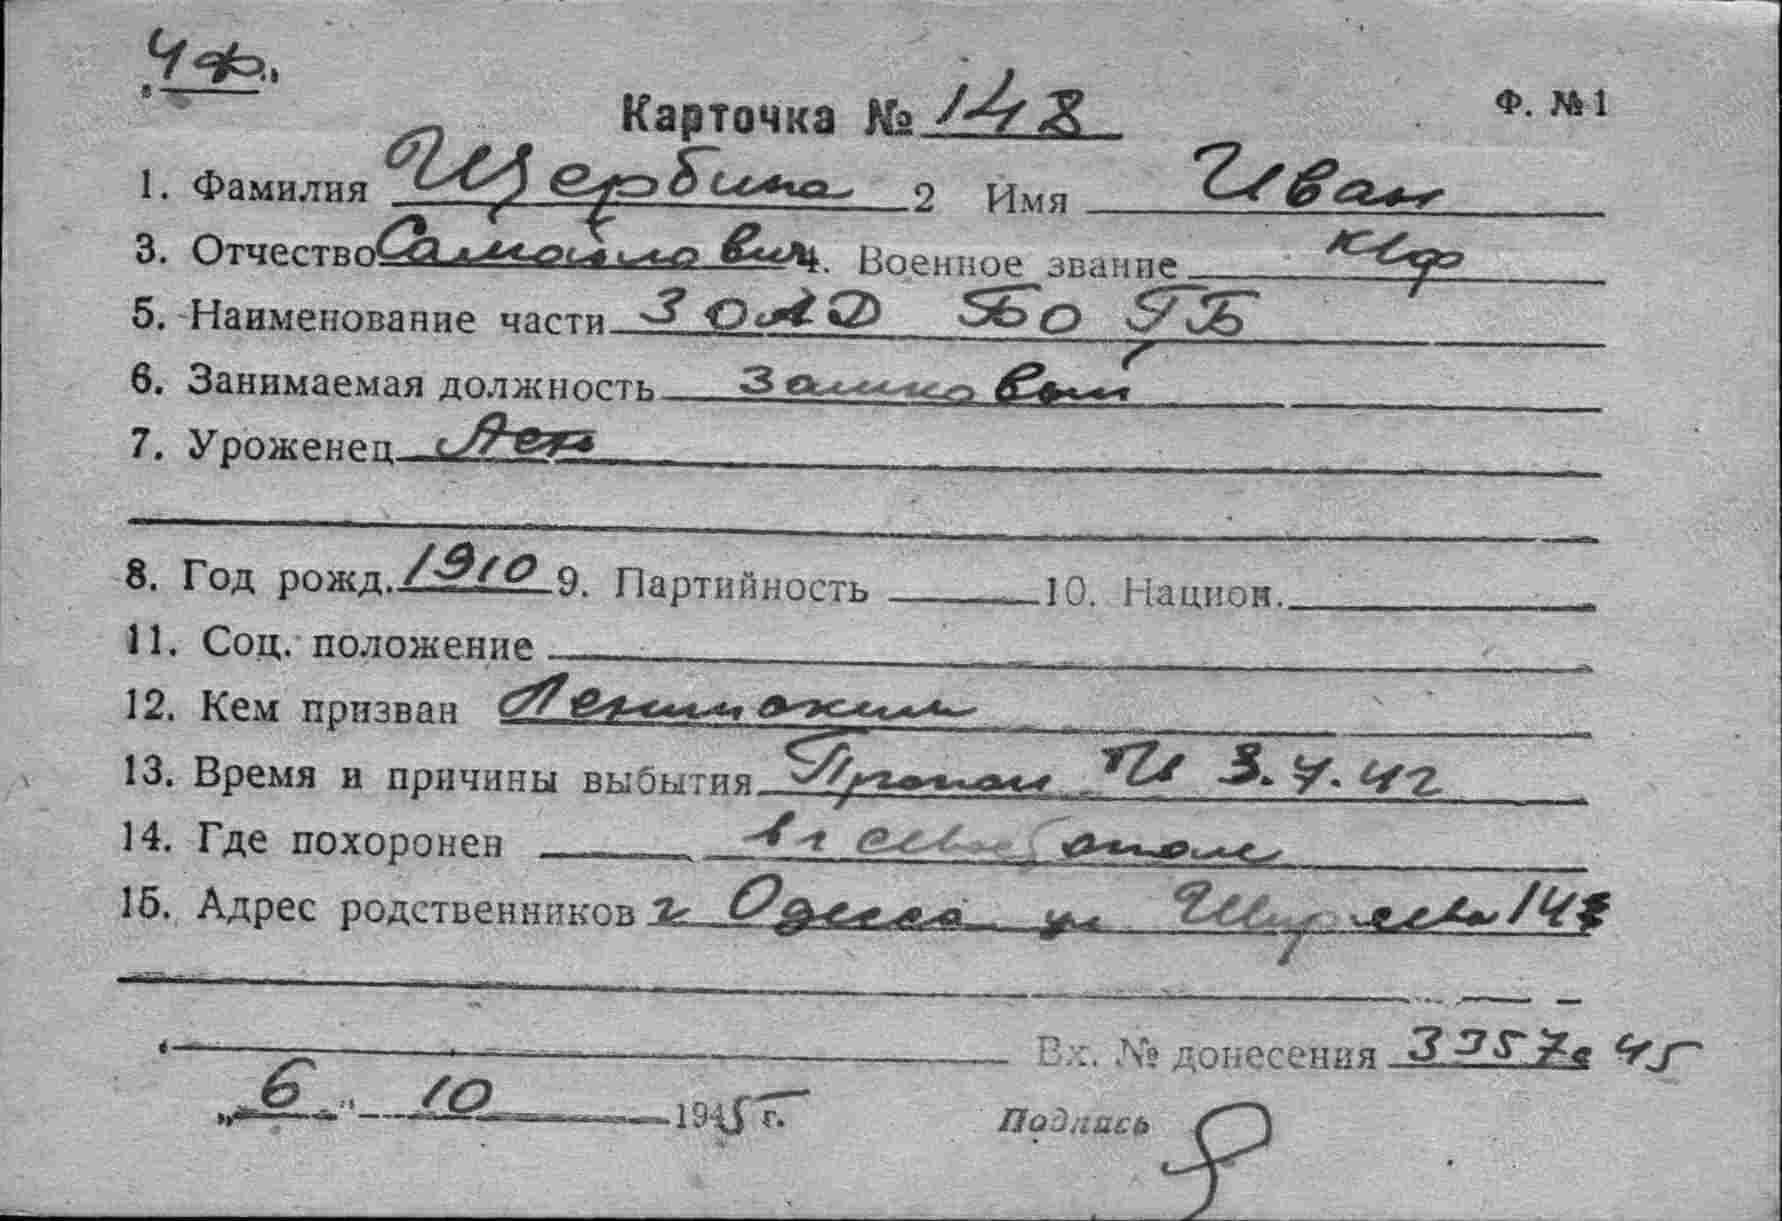 ЧФ.
Карточка № 148
Ф. № 1
1. Фамилия Щербина 2 Имя Иван
3. Отчество Самойлович 4. Военное звание кнф
5. Наименование части ЗОАД БО ГБ
6. Занимаемая должность замковый
7. Уроженец
8. Год рожд. 1910 9. Партийность 10. Национ.
11. Соц. положение
12. Кем призван Ленинским
13. Время и причины выбытия Пропал 3.7.42
14. Где похоронен в г Севастополе
15. Адрес родственников г Одесса ул Ширяева
Вх. № донесения 3357с 45
„6" 10 1945 г.
Подпись